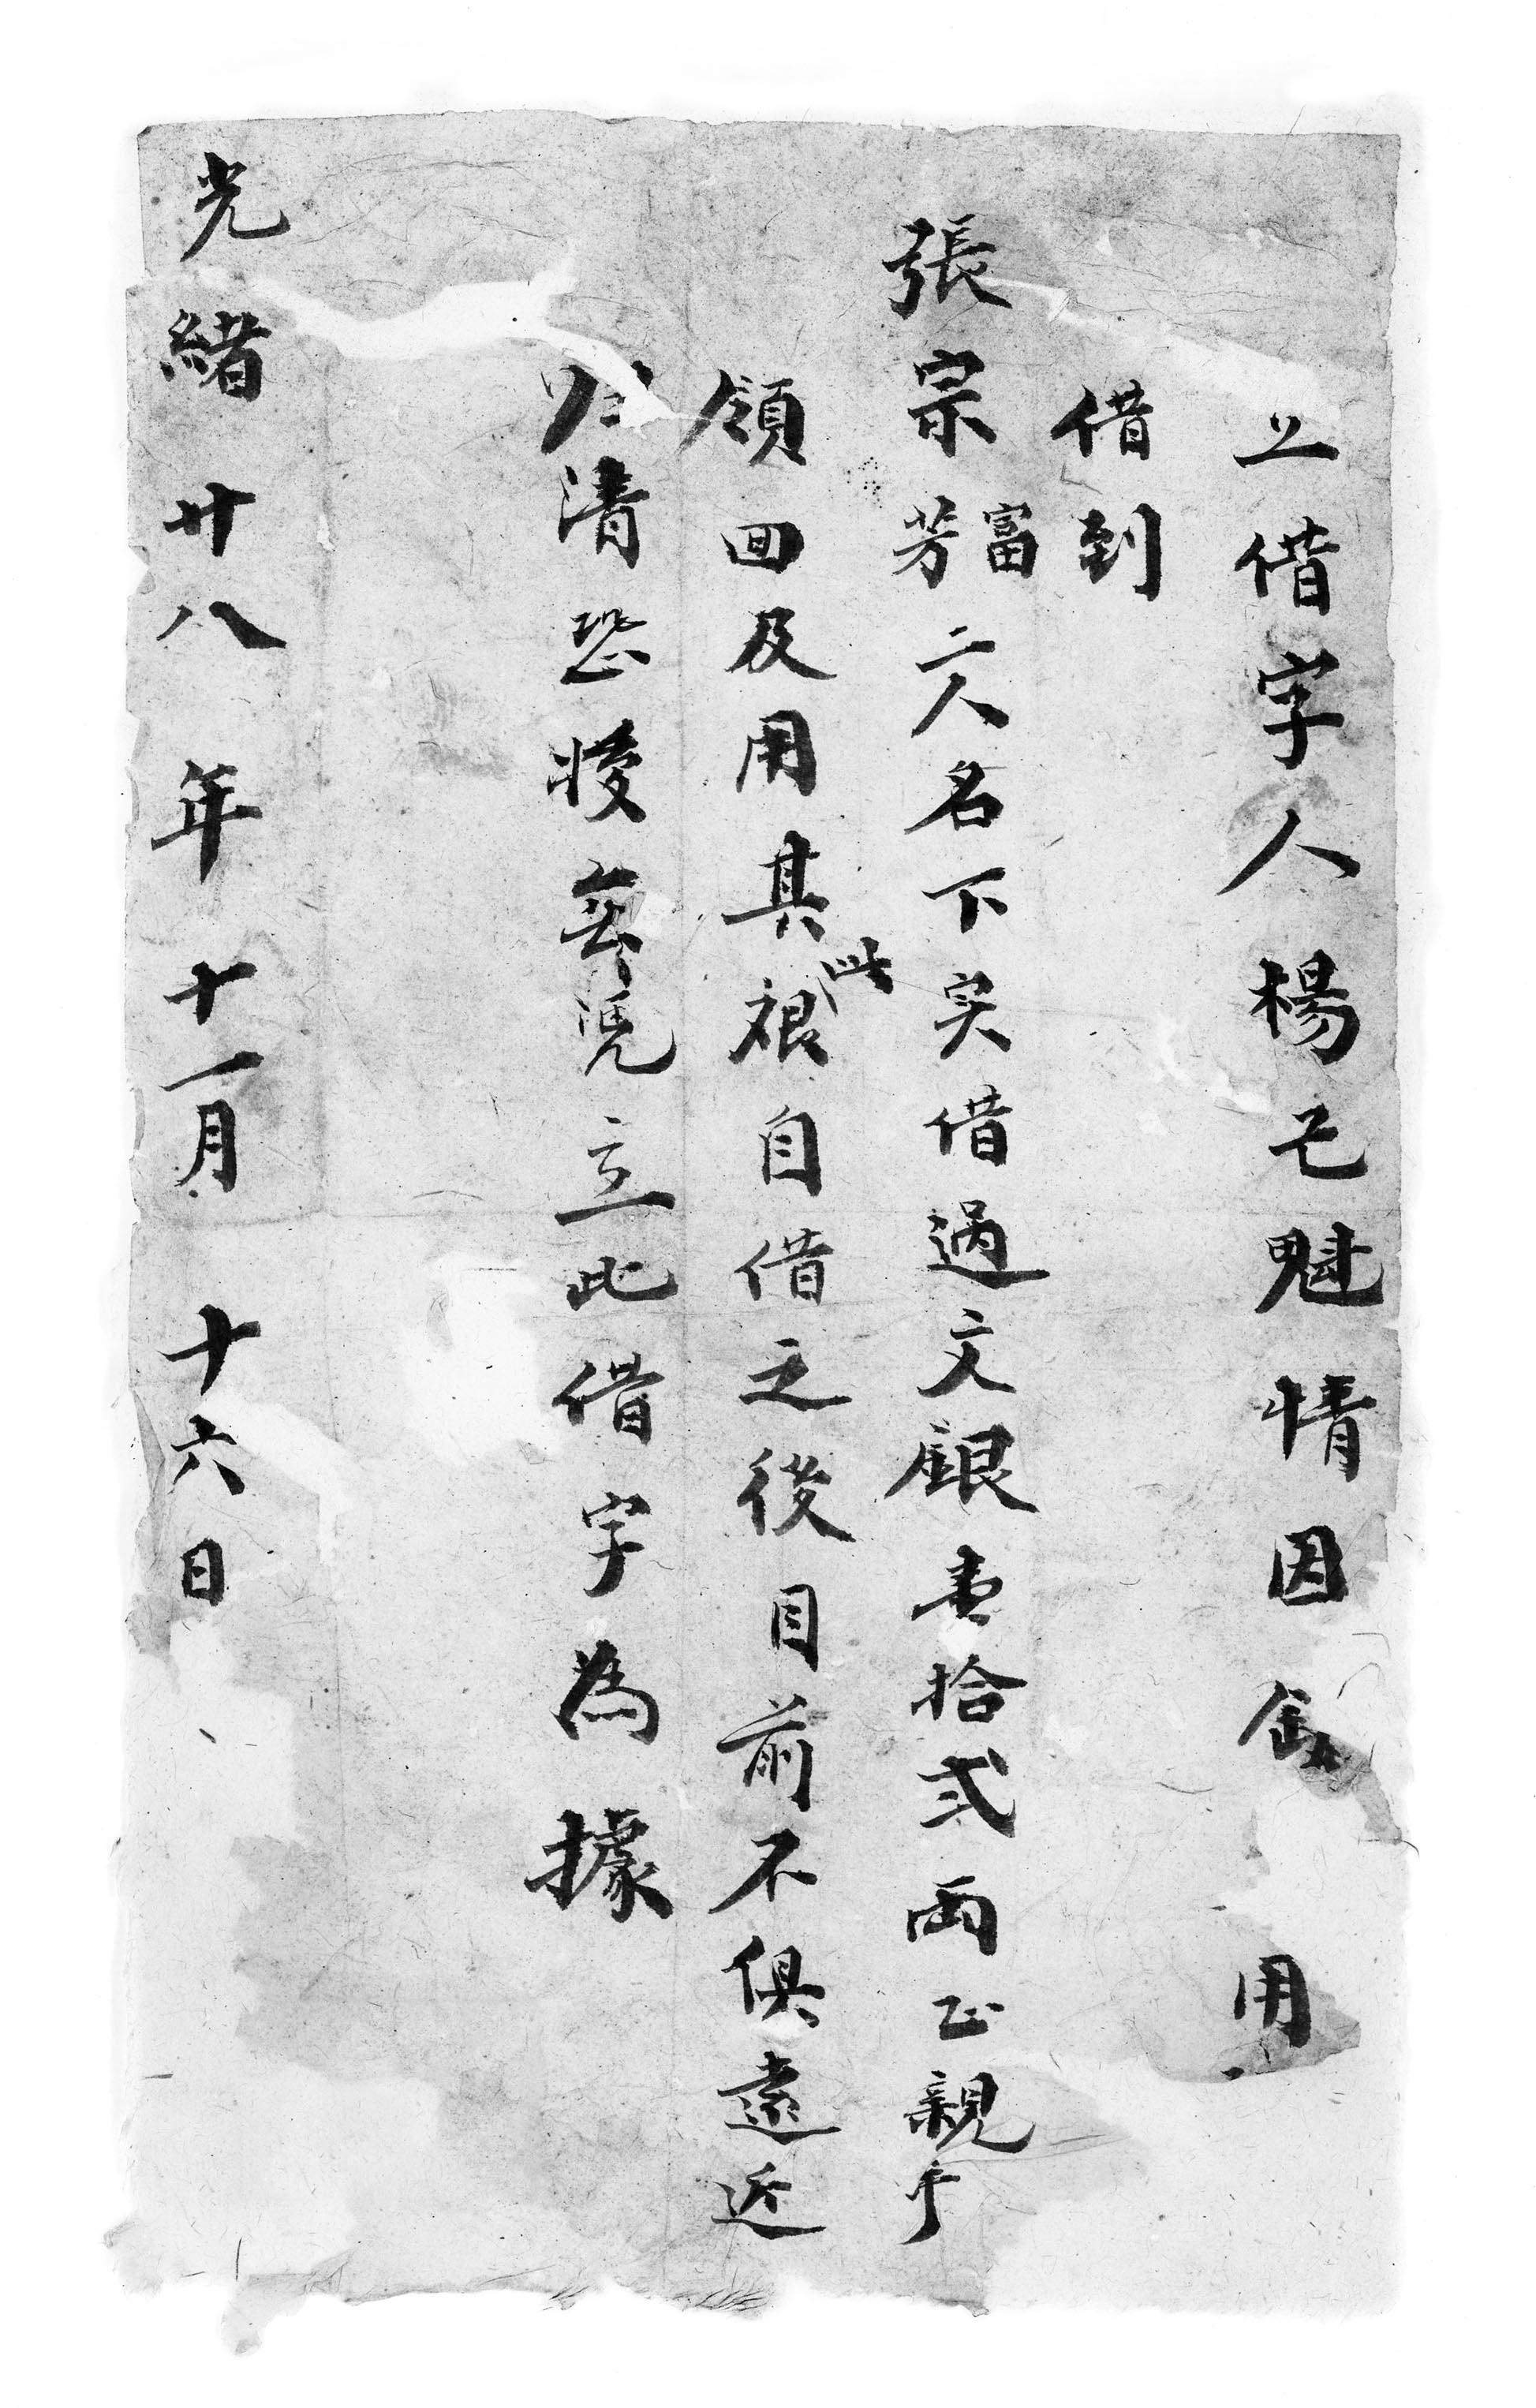 立借字人楊乜魁情因 用
借到
張宗富芳二人名下实借過文銀壹拾弍両正親手
領回及用其銀此自借之後目前不俱遠近
归清恐後無凭立此借字為據
光緒廿八年十一月十六日